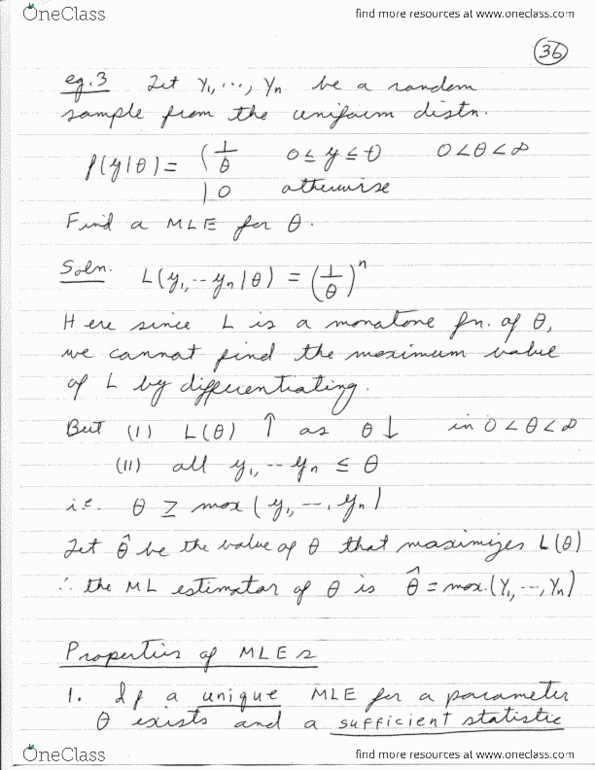 OneClass find more resources at www.oneclass.com
36
eg.3 Let Y₁, ···, Yn be a random
sample from the uniform distn.
f(y|θ) = { 1/θ 0 ≤ y ≤ θ 0 < θ < ∞
0 otherwise
Find a MLE for θ.
Soln. L(y₁, -- yn | θ) = (1/θ)ⁿ
Here since L is a monotone fn. of θ,
we cannot find the maximum value
of L by differentiating.
But (i) L(θ) ↑ as θ ↓ in 0 < θ < ∞
(ii) all y₁, -- yn ≤ θ
i.e. θ ≥ max (y₁, --, yn)
Let θ̂ be the value of θ that maximizes L(θ)
∴ the ML estimator of θ is θ̂ = max.(Y₁, --, Yn)
Properties of MLEs
1. If a unique MLE for a parameter
θ exists and a sufficient statistic
OneClass find more resources at www.oneclass.com